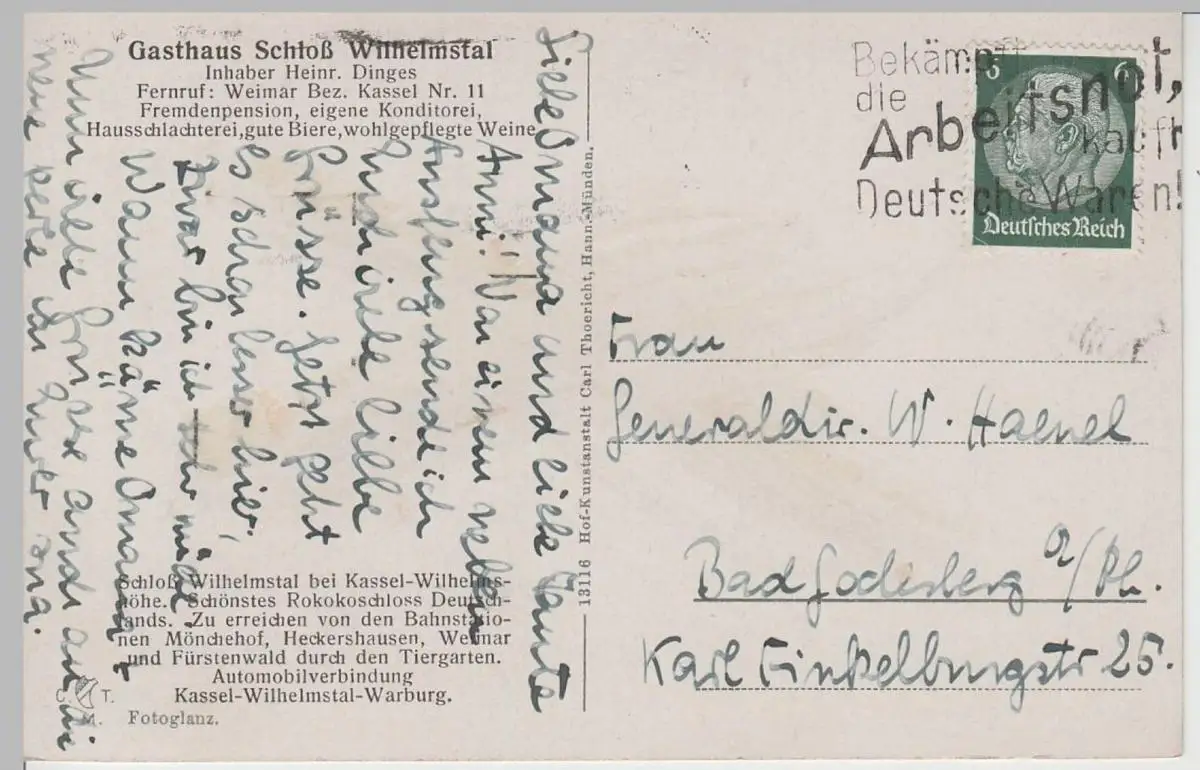 Gasthaus Schloß Wilhelmstal
Inhaber Heinr. Dinges
Fernruf: Weimar Bez. Kassel Nr. 11
Fremdenpension, eigene Konditorei,
Hausschlachterei, gute Biere, wohlgepflegte Weine
Liebe Omama und liebe Tante
Anni! Von einem netten
Ausflug sende ich
Euch viele liebe
Grüsse. Jetzt geht
es schon besser hier,
zwar bin ich sehr müde
Wann käme Omama
Nun viele Grüsse auch an
von Eurer
Schloß Wilhelmstal bei Kassel-Wilhelms-
höhe. Schönstes Rokokoschloss Deutsch-
lands. Zu erreichen von den Bahnstatio-
nen Mönchehof, Heckershausen, Weimar
und Fürstenwald durch den Tiergarten.
Automobilverbindung
Kassel-Wilhelmstal-Warburg.
C. T.
M. Fotoglanz.
13116 Hof-Kunstanstalt Carl Thoericht, Hann.-Münden.
Bekämpft
die
Arbeitsnot,
kauft
Deutsche Waren!
6 6
Deutsches Reich
Frau
Generaldir. W. Haenel
Bad Godesberg a/Rh.
Karl Finkelburgstr 25.